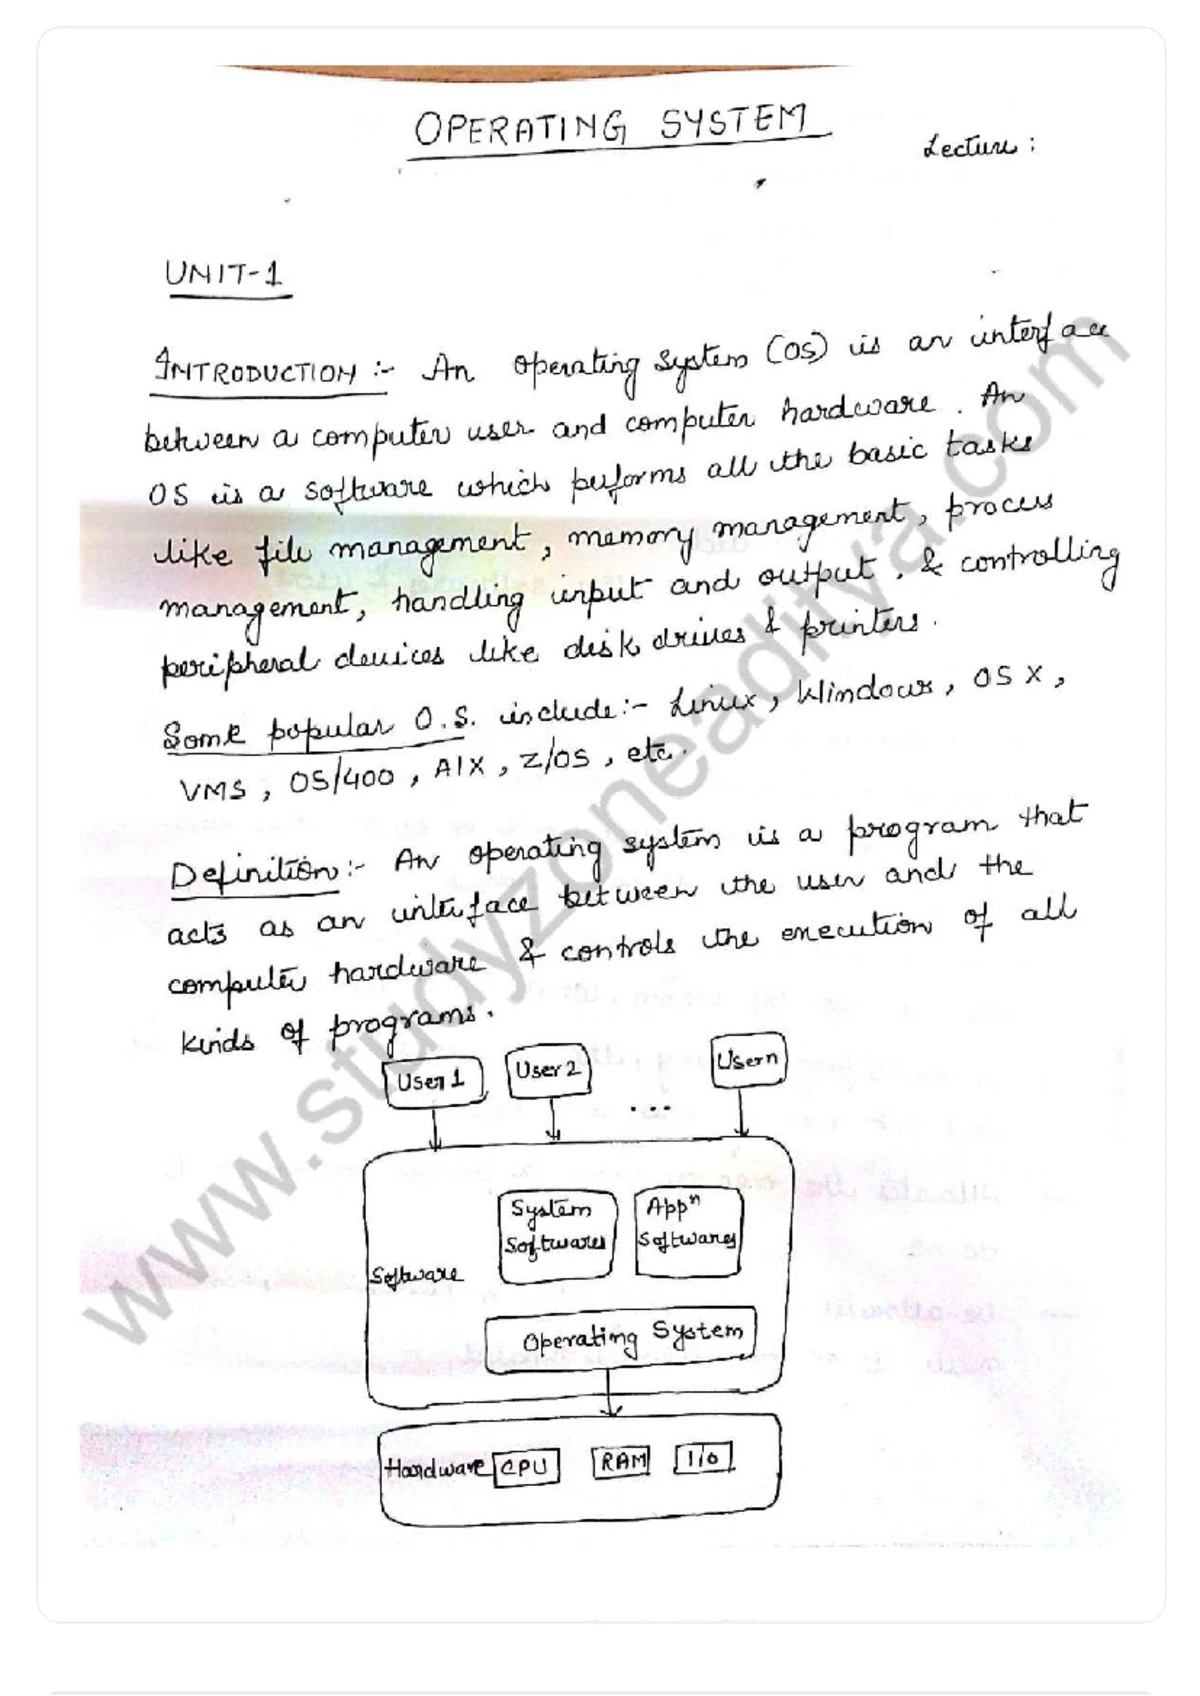 OPERATING SYSTEM
Lecture :
UNIT-1
INTRODUCTION :- An operating system (OS) is an interface
between a computer user and computer hardware. An
OS is a software which performs all the basic tasks
like file management, memory management, process
management, handling input and output, & controlling
peripheral devices like disk drives & printers.
Some popular O.S. include:- Linux, Windows, OS X,
VMS, OS/400, AIX, Z/OS, etc.
Definition:- An operating system is a program that
acts as an interface between the user and the
computer hardware & controls the execution of all
kinds of programs.
User 1 User 2 ... User n
System Appⁿ
Softwares Softwares
Software
Operating System
Hardware CPU RAM I/O
www.studyzoneaditya.com